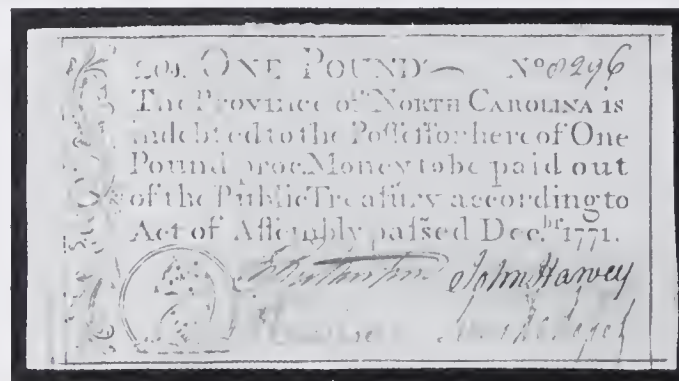 20s. ONE POUND — No 8296
The Province of NORTH CAROLINA is
indebted to the Poſſeſſor hereof One
Pound proc. Money to be paid out
of the Public Treaſury according to
Act of Aſſembly paſsed Dec.br 1771.
John Harvey